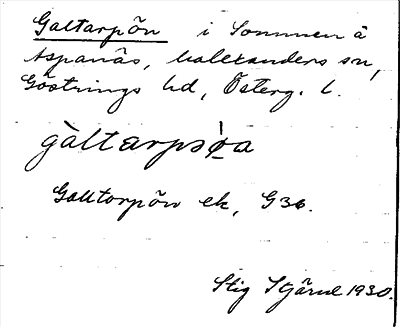 Galtarpön i Sommen å
Aspanäs, Malexanders sn,
Göstrings hd, Österg. l.
gàltarpsø̀a
Galltorpön ek, G36.
Stig Stjärne 1930.